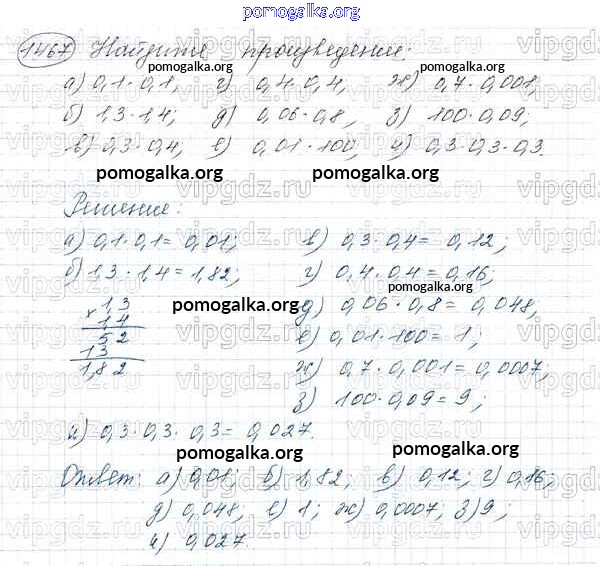 pomogalka.org
1467 Найдите произведение:
а) 0,1 · 0,1; г) 0,4 · 0,4; ж) 0,7 · 0,001;
б) 1,3 · 1,4; д) 0,06 · 0,8; з) 100 · 0,09;
в) 0,3 · 0,4; е) 0,01 · 100; и) 0,3 · 0,3 · 0,3.
pomogalka.org pomogalka.org
Решение:
а) 0,1 · 0,1 = 0,01;
б) 1,3 · 1,4 = 1,82;
× 1,3
1,4
52
13
1,82
в) 0,3 · 0,4 = 0,12;
г) 0,4 · 0,4 = 0,16;
д) 0,06 · 0,8 = 0,048;
е) 0,01 · 100 = 1;
ж) 0,7 · 0,001 = 0,0007;
з) 100 · 0,09 = 9;
и) 0,3 · 0,3 · 0,3 = 0,027.
Ответ: а) 0,01; б) 1,82; в) 0,12; г) 0,16;
д) 0,048; е) 1; ж) 0,0007; з) 9;
и) 0,027.
pomogalka.org
vipgdz.ru